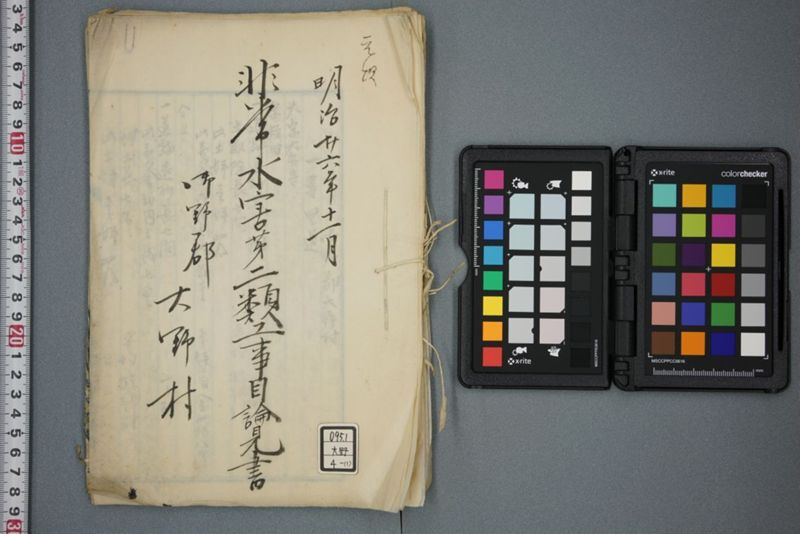 明治廿六年十一月
非常水害第二類工事目論見書
大野郡
大野村
095.1
大野
4-(1)
x-rite
x-rite
colorchecker
MSCCPPCC0616
mm
10
20
30